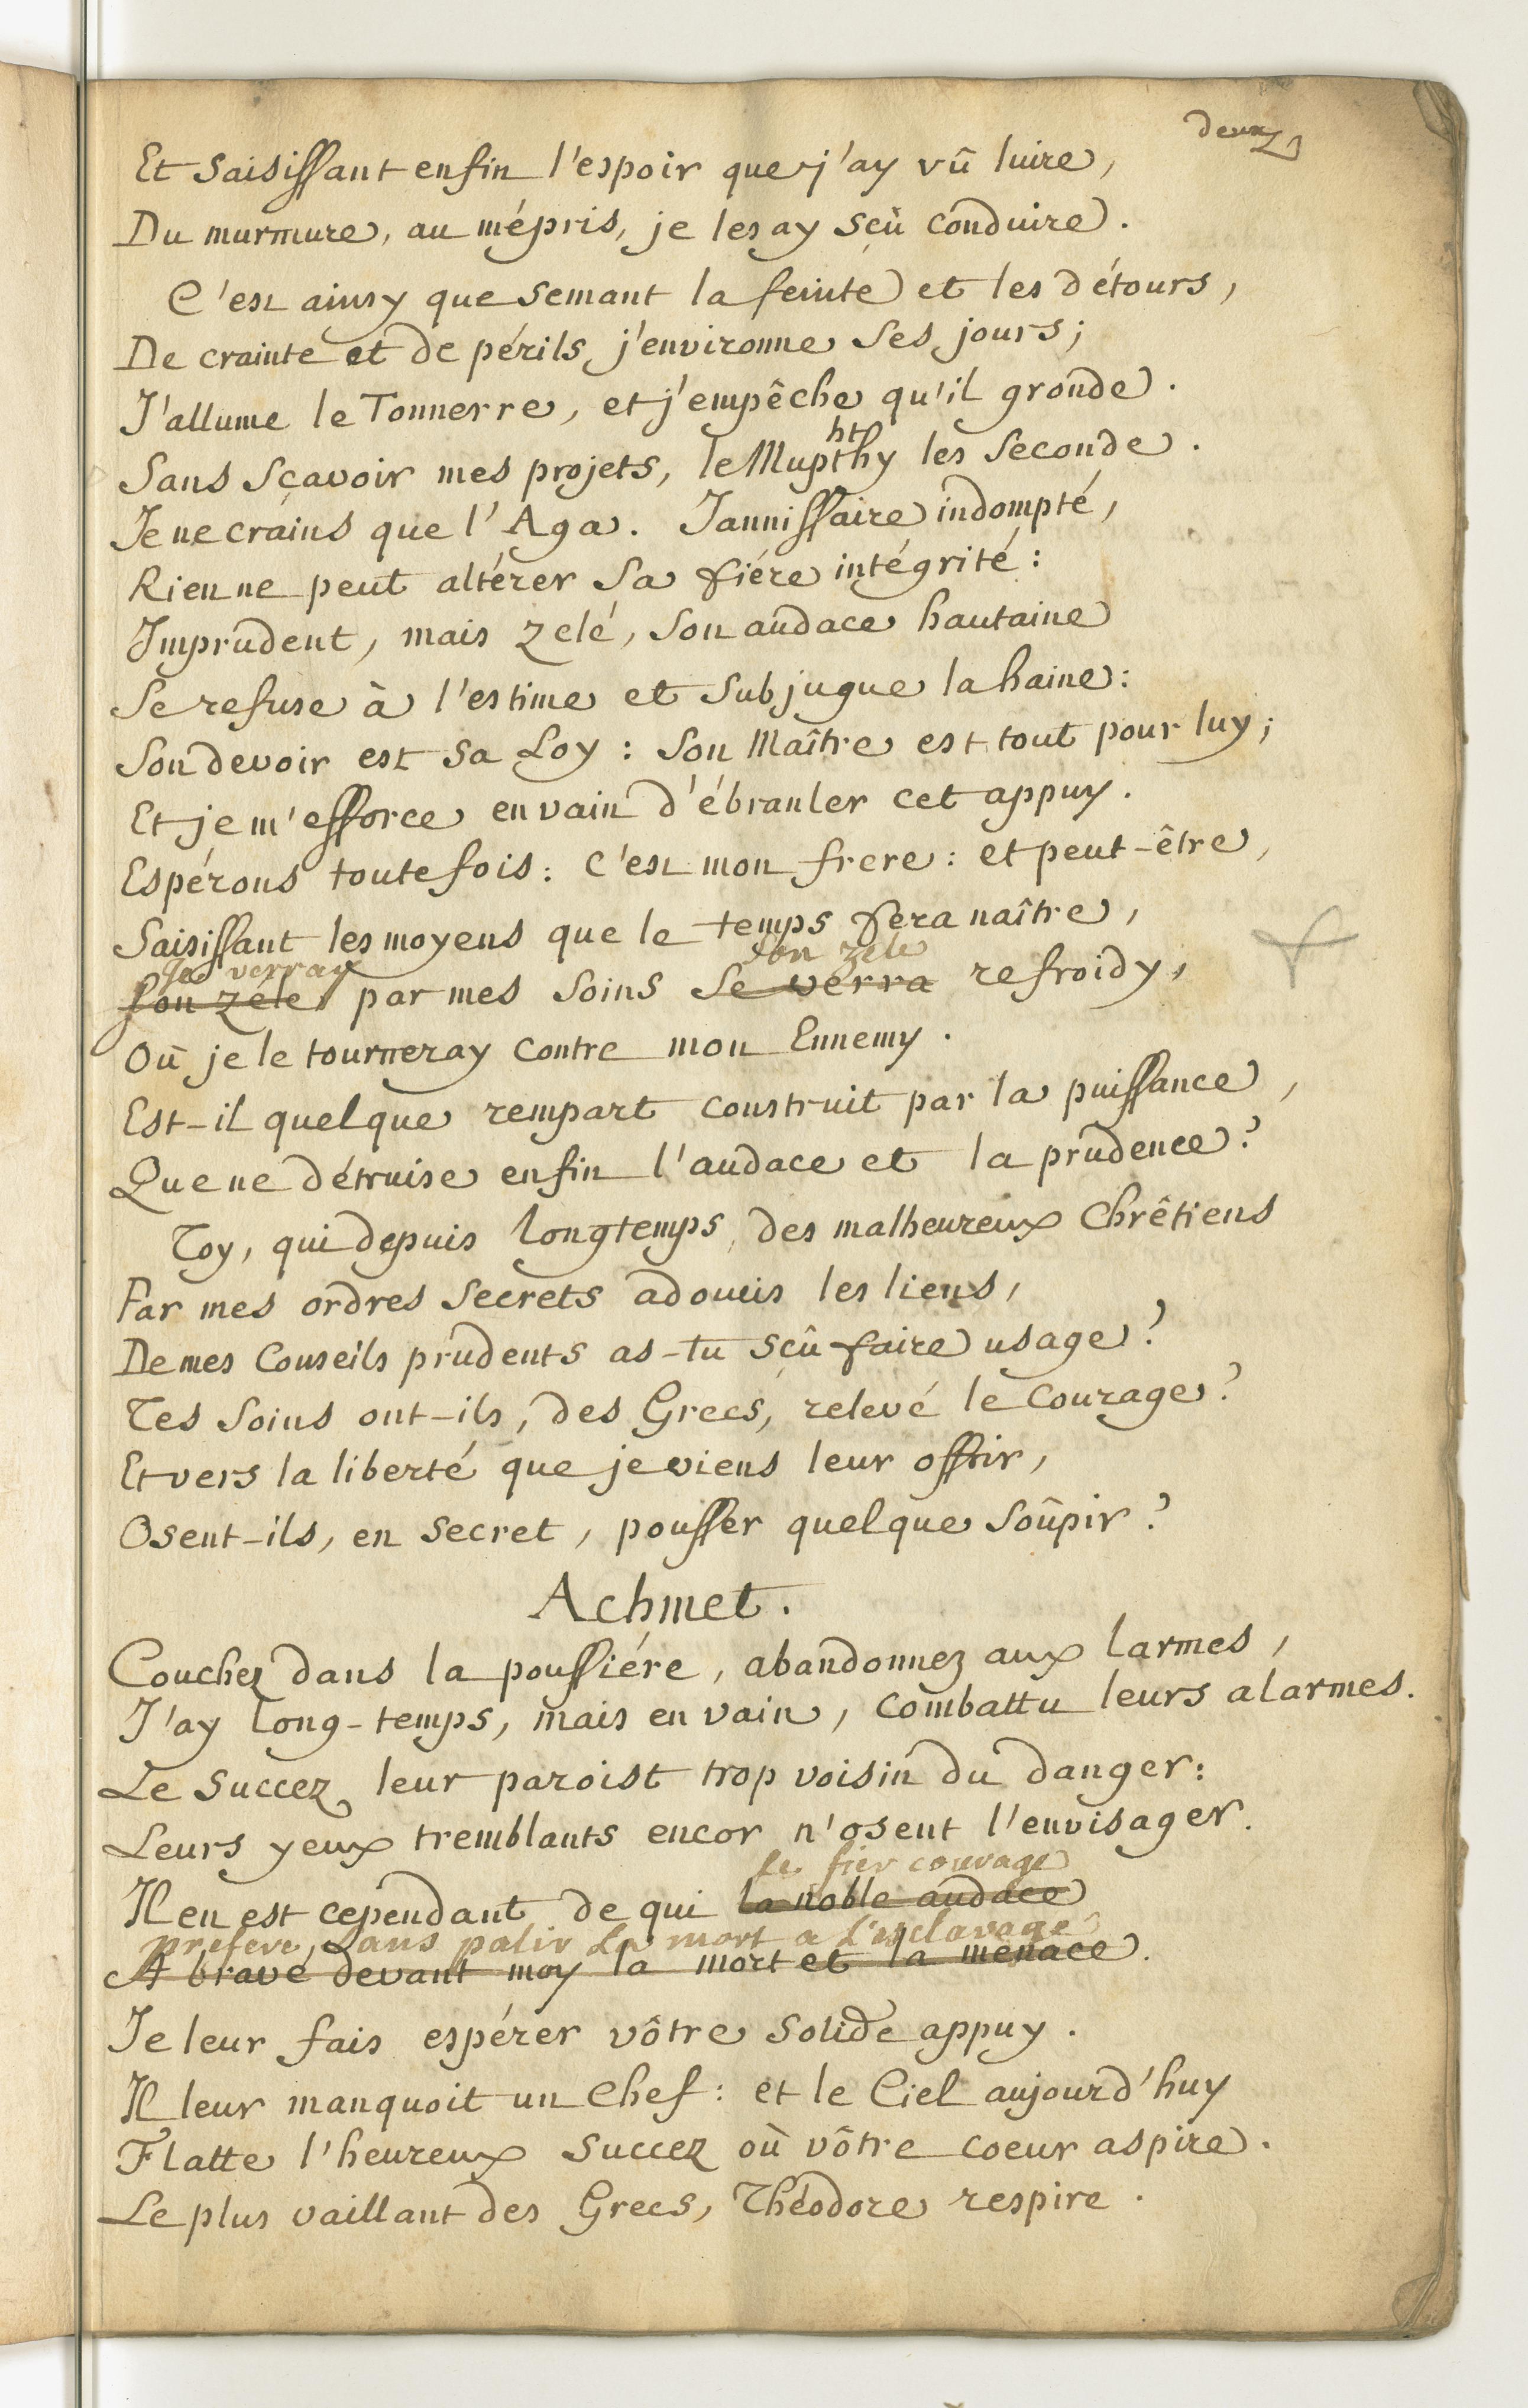 deux
Et saisissant enfin l'espoir que j'ay vû luire,
Du murmure, au mépris, je les ay sçû conduire.
C'est ainsy que semant la feinte et les détours,
De crainte et de périls j'environne ses jours;
J'allume le Tonnerre, et j'empêche qu'il gronde.
ht
Sans sçavoir mes projets, le Mupthy les seconde.
Je ne crains que l'Aga. Jannissaire indompté,
Rien ne peut altérer sa fiére intégrité:
Imprudent, mais zelé, son audace hautaine
Se refuse à l'estime et subjugue la haine:
Son devoir est sa Loy: son Maître est tout pour luy;
Et je m'efforce en vain d'ébranler cet appuy.
Espérons toutefois: c'est mon frere: et peut-être,
Saisissant les moyens que le temps fera naître,
Je verray son zele
Son zéle par mes soins se verra refroidy,
Où je le tourneray contre mon Ennemy.
Est-il quelque rempart construit par la puissance,
Que ne détruise enfin l'audace et la prudence?
Toy, qui depuis longtemps, des malheureux Chrêtiens
Par mes ordres secrets adoucis les liens,
De mes Conseils prudents as-tu sçû faire usage?
Tes soins ont-ils, des Grecs, relevé le Courage?
Et vers la liberté que je viens leur offrir,
Osent-ils, en secret, pousser quelque soûpir?
Achmet.
Couchez dans la poussiére, abandonnez aux larmes,
J'ay long-temps, mais en vain, combattu leurs alarmes.
Le succez leur paroist trop voisin du danger:
Leurs yeux tremblants encor n'osent l'envisager.
le fier courage
Il en est cependant de qui la noble audace
prefere, sans palir la mort a l'esclavage
A bravé devant moy la mort et la menace.
Je leur fais espérer vôtre solide appuy.
Il leur manquoit un Chef: et le Ciel aujourd'huy
Flatte l'heureux succez où vôtre coeur aspire.
Le plus vaillant des Grecs, Théodore respire.